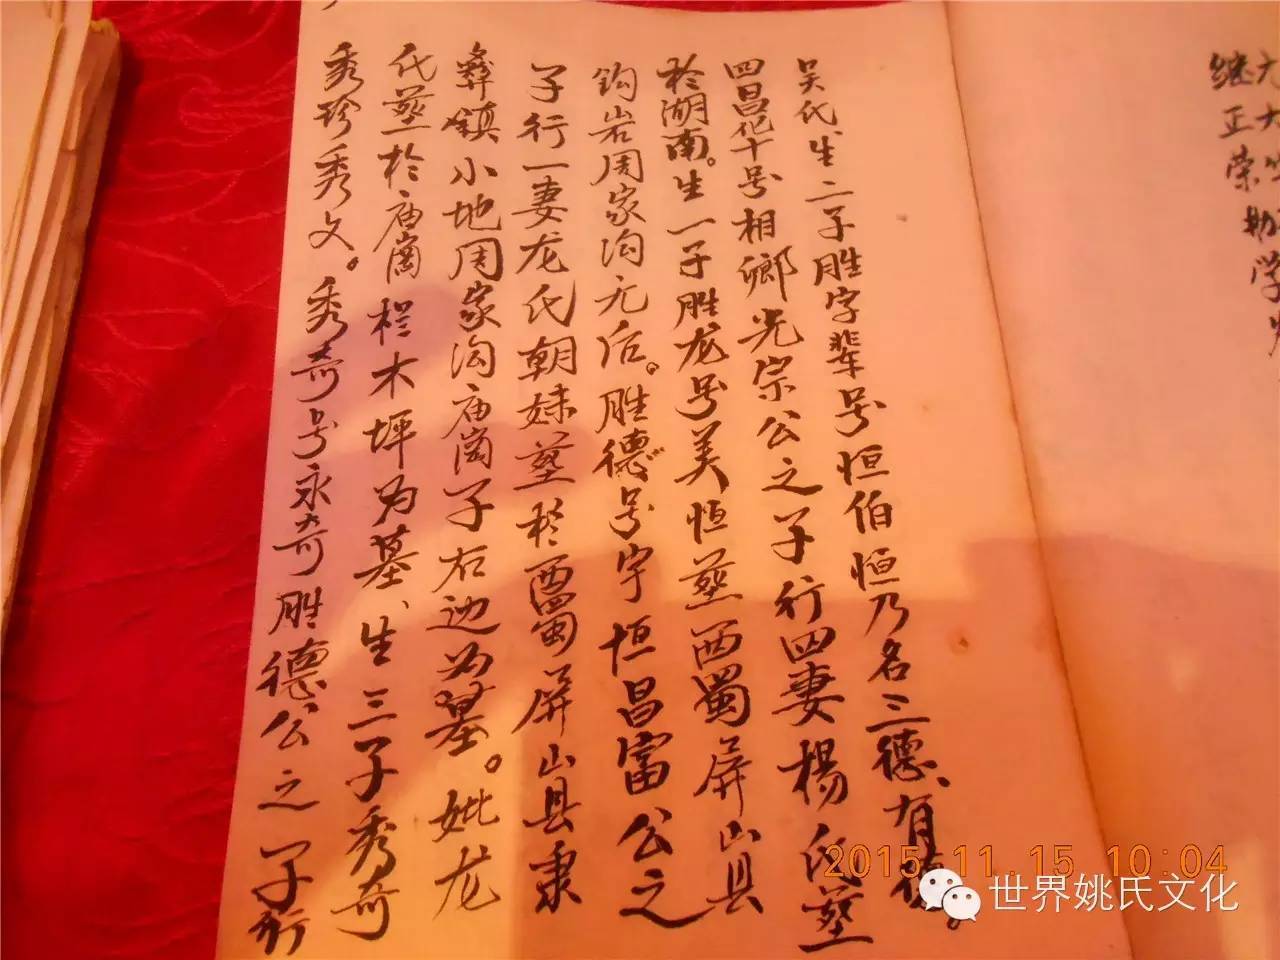 六大
继正荣勋学
吴氏、生二子胜字辈号恒伯恒乃名三德、有德。
四昌化十号相卿光宗公之子行四妻杨氏葬
於湖南。生一子胜龙号美恒葬西蜀屏山县
钩岩周家沟无后。胜德号字恒昌富公之
子行一妻龙氏朝妹葬於西蜀屏山县秉
彝镇小地周家沟庙岗子右边为墓。妣龙
氏葬於庙岗栏木坪为墓、生三子秀奇
秀珍秀文。秀奇号永奇胜德公之子行
2015.11.15 10:04
世界姚氏文化